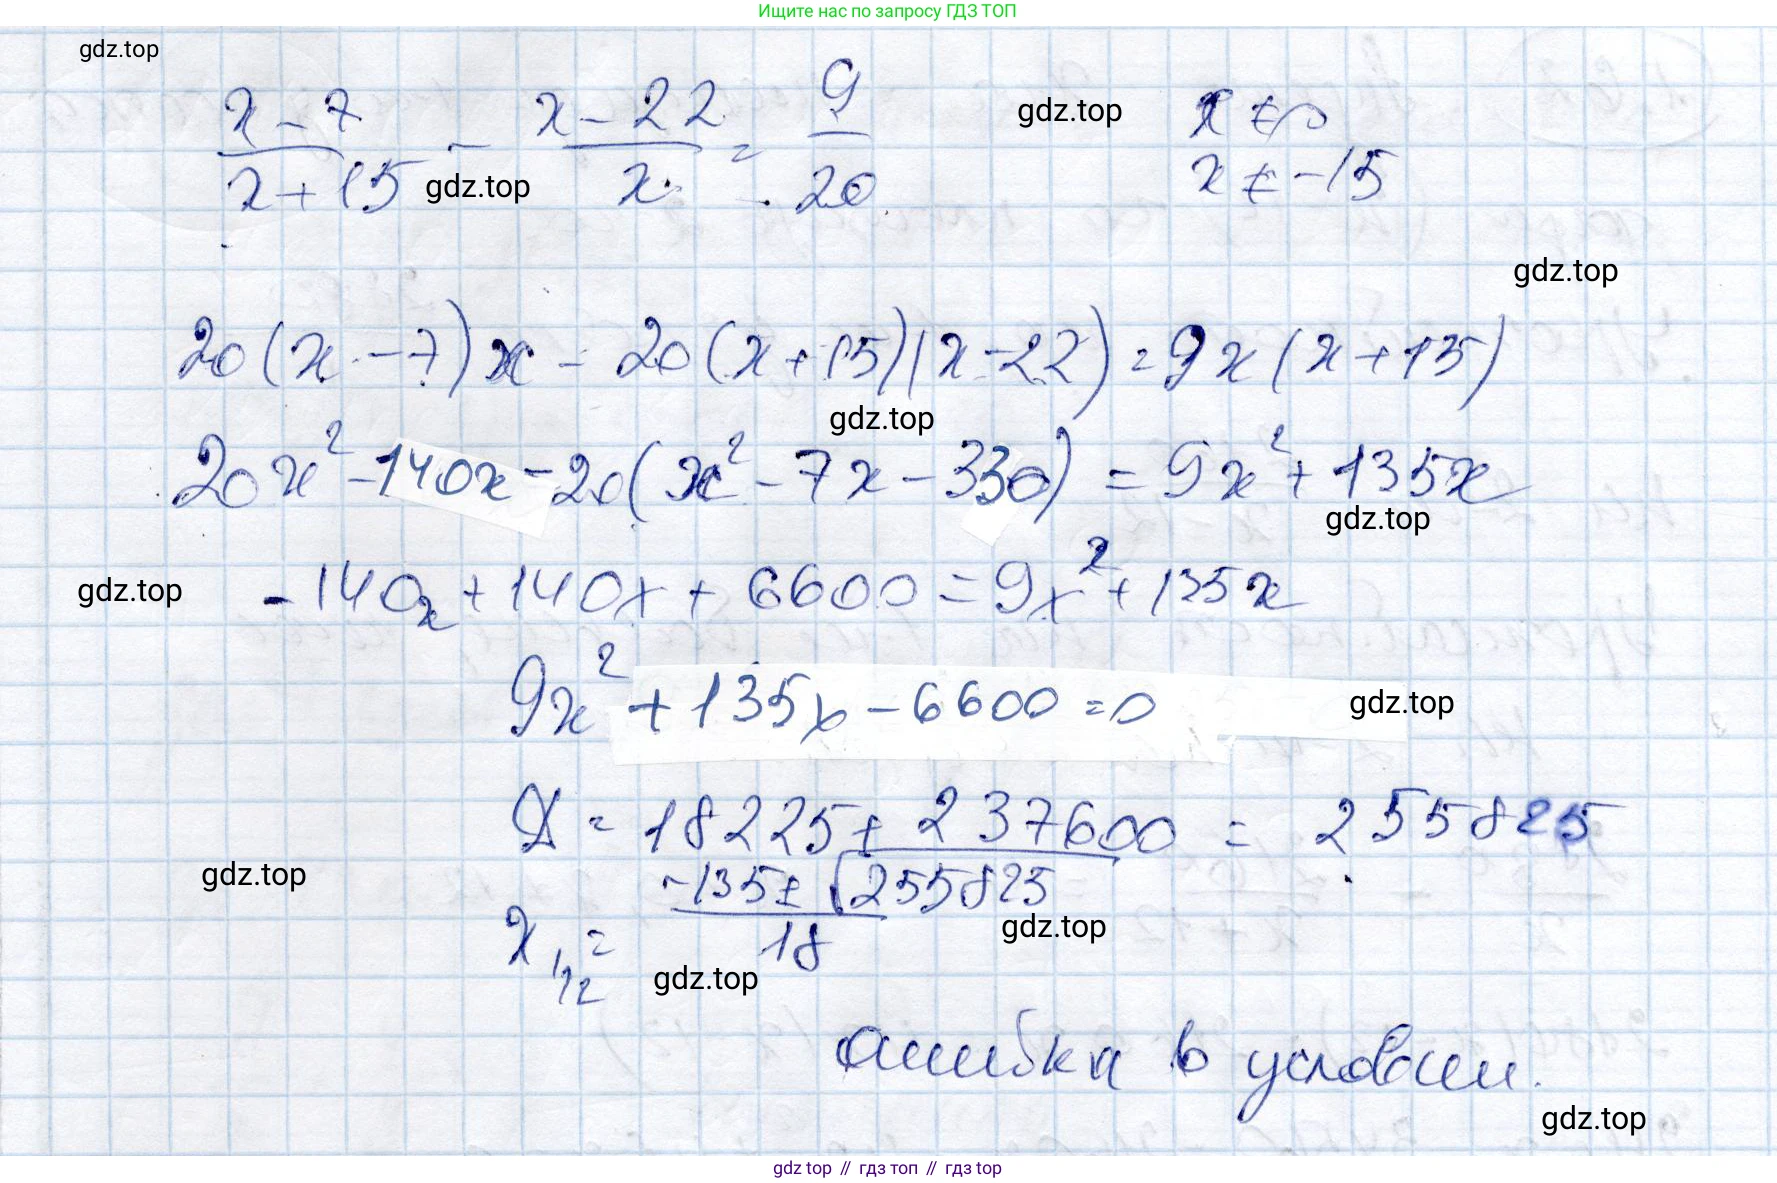 Ищите нас по запросу ГДЗ ТОП
gdz.top
(x-7)/(x+15) - (x-22)/x = 9/20
gdz.top
gdz.top
x ≠ 0
x ≠ -15
gdz.top
20(x-7)x - 20(x+15)(x-22) = 9x(x+15)
gdz.top
20x² - 140x - 20(x² - 7x - 330) = 9x² + 135x
gdz.top
gdz.top
-140x + 140x + 6600 = 9x² + 135x
9x² + 135x - 6600 = 0
gdz.top
Д = 18225 + 237600 = 255825
gdz.top
x₁,₂ = (-135 ± √255825)/18
gdz.top
gdz.top
ошибка в условии.
gdz.top
gdz top // гдз топ // гдз top